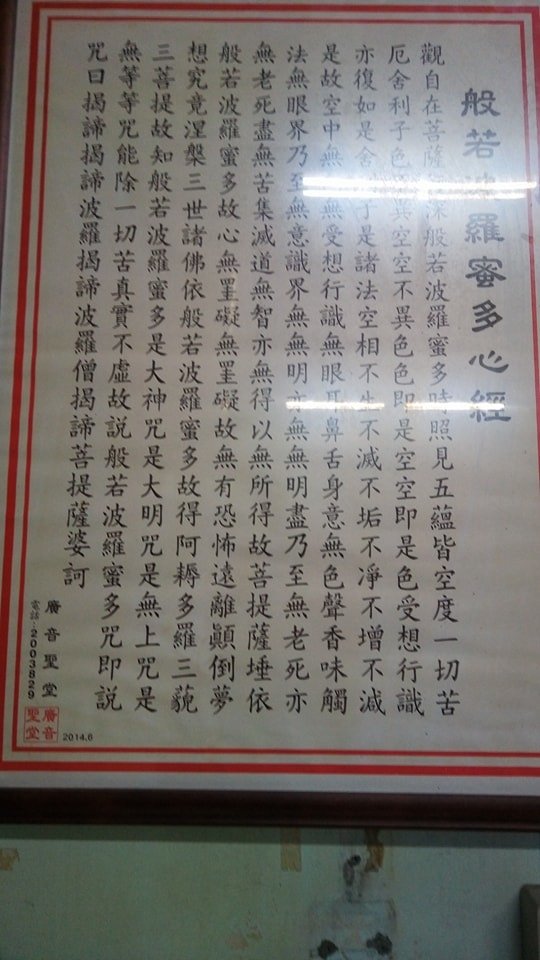 般若波羅蜜多心經
觀自在菩薩深般若波羅蜜多時照見五蘊皆空度一切苦
厄舍利子色異空空不異色色即是空空即是色受想行識
亦復如是舍子是諸法空相不生不滅不垢不凈不增不減
是故空中無無受想行識無眼耳鼻舌身意無色聲香味觸
法無眼界乃至無意識界無無明亦無無明盡乃至無老死亦
無老死盡無苦集滅道無智亦無得以無所得故菩提薩埵依
般若波羅蜜多故心無罣礙無罣礙故無有恐怖遠離顛倒夢
想究竟涅槃三世諸佛依般若波羅蜜多故得阿耨多羅三藐
三菩提故知般若波羅蜜多是大神咒是大明咒是無上咒是
無等等咒能除一切苦真實不虛故說般若波羅蜜多咒即説
咒曰揭諦揭諦波羅揭諦波羅僧揭諦菩提薩婆訶
廣音聖堂
電話:2003829
廣音聖堂
2014.6